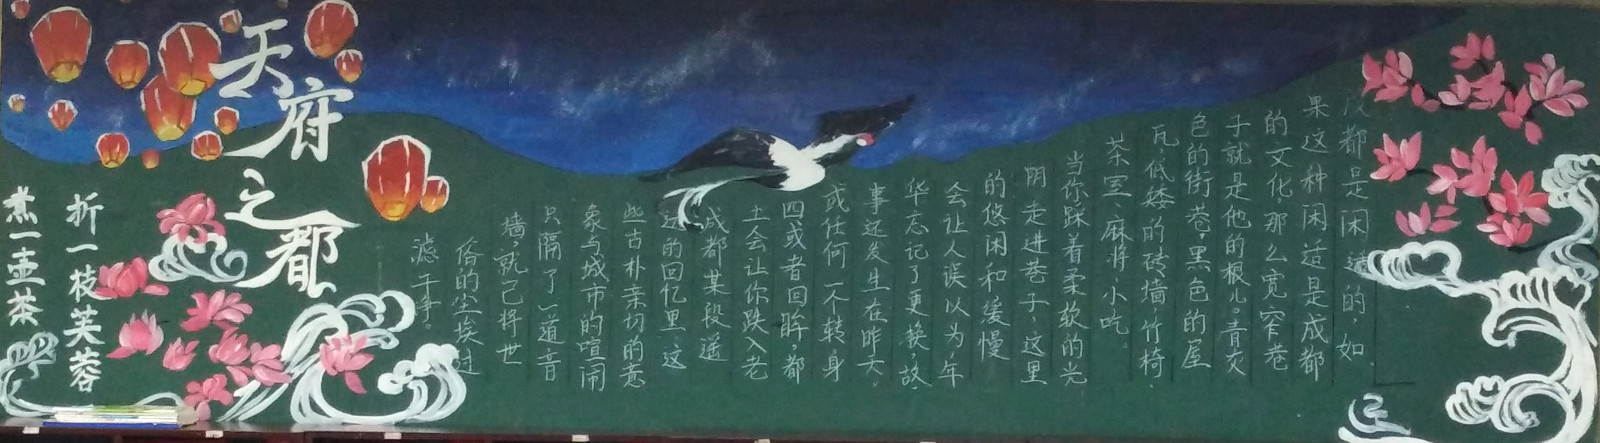 天府之都
折一枝芙蓉
煮一壶茶
成都是闲适的，如
果这种闲适是成都
的文化，那么宽窄巷
子就是他的根儿。青灰
色的街巷，黑色的屋
瓦，低矮的砖墙，竹椅、
茶室、麻将、小吃。
当你踩着柔软的光
阴走进巷子，这里
的悠闲和缓慢
会让人误以为年
华忘记了更换，故
事还发生在昨天。
或任何一个转身
四或者回眸，都
土会让你跌入老
成都某段遥
远的回忆里。这
些古朴亲切的意
象与城市的喧闹
只隔了一道音
墙，就已将世
俗的尘埃过
滤干净。